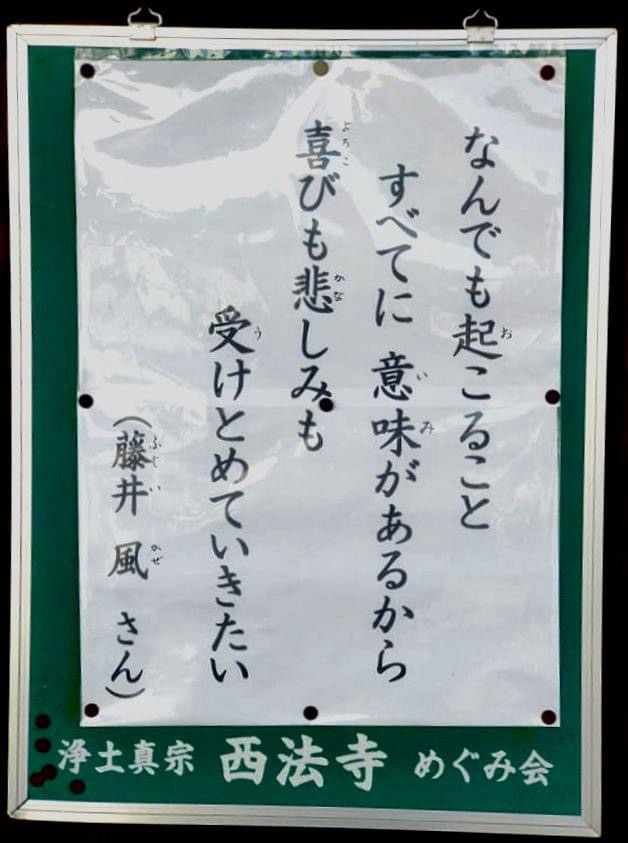 なんでも起こること
すべてに 意味があるから
喜びも悲しみも
受けとめていきたい
（藤井 風 さん）
浄土真宗 西法寺 めぐみ会